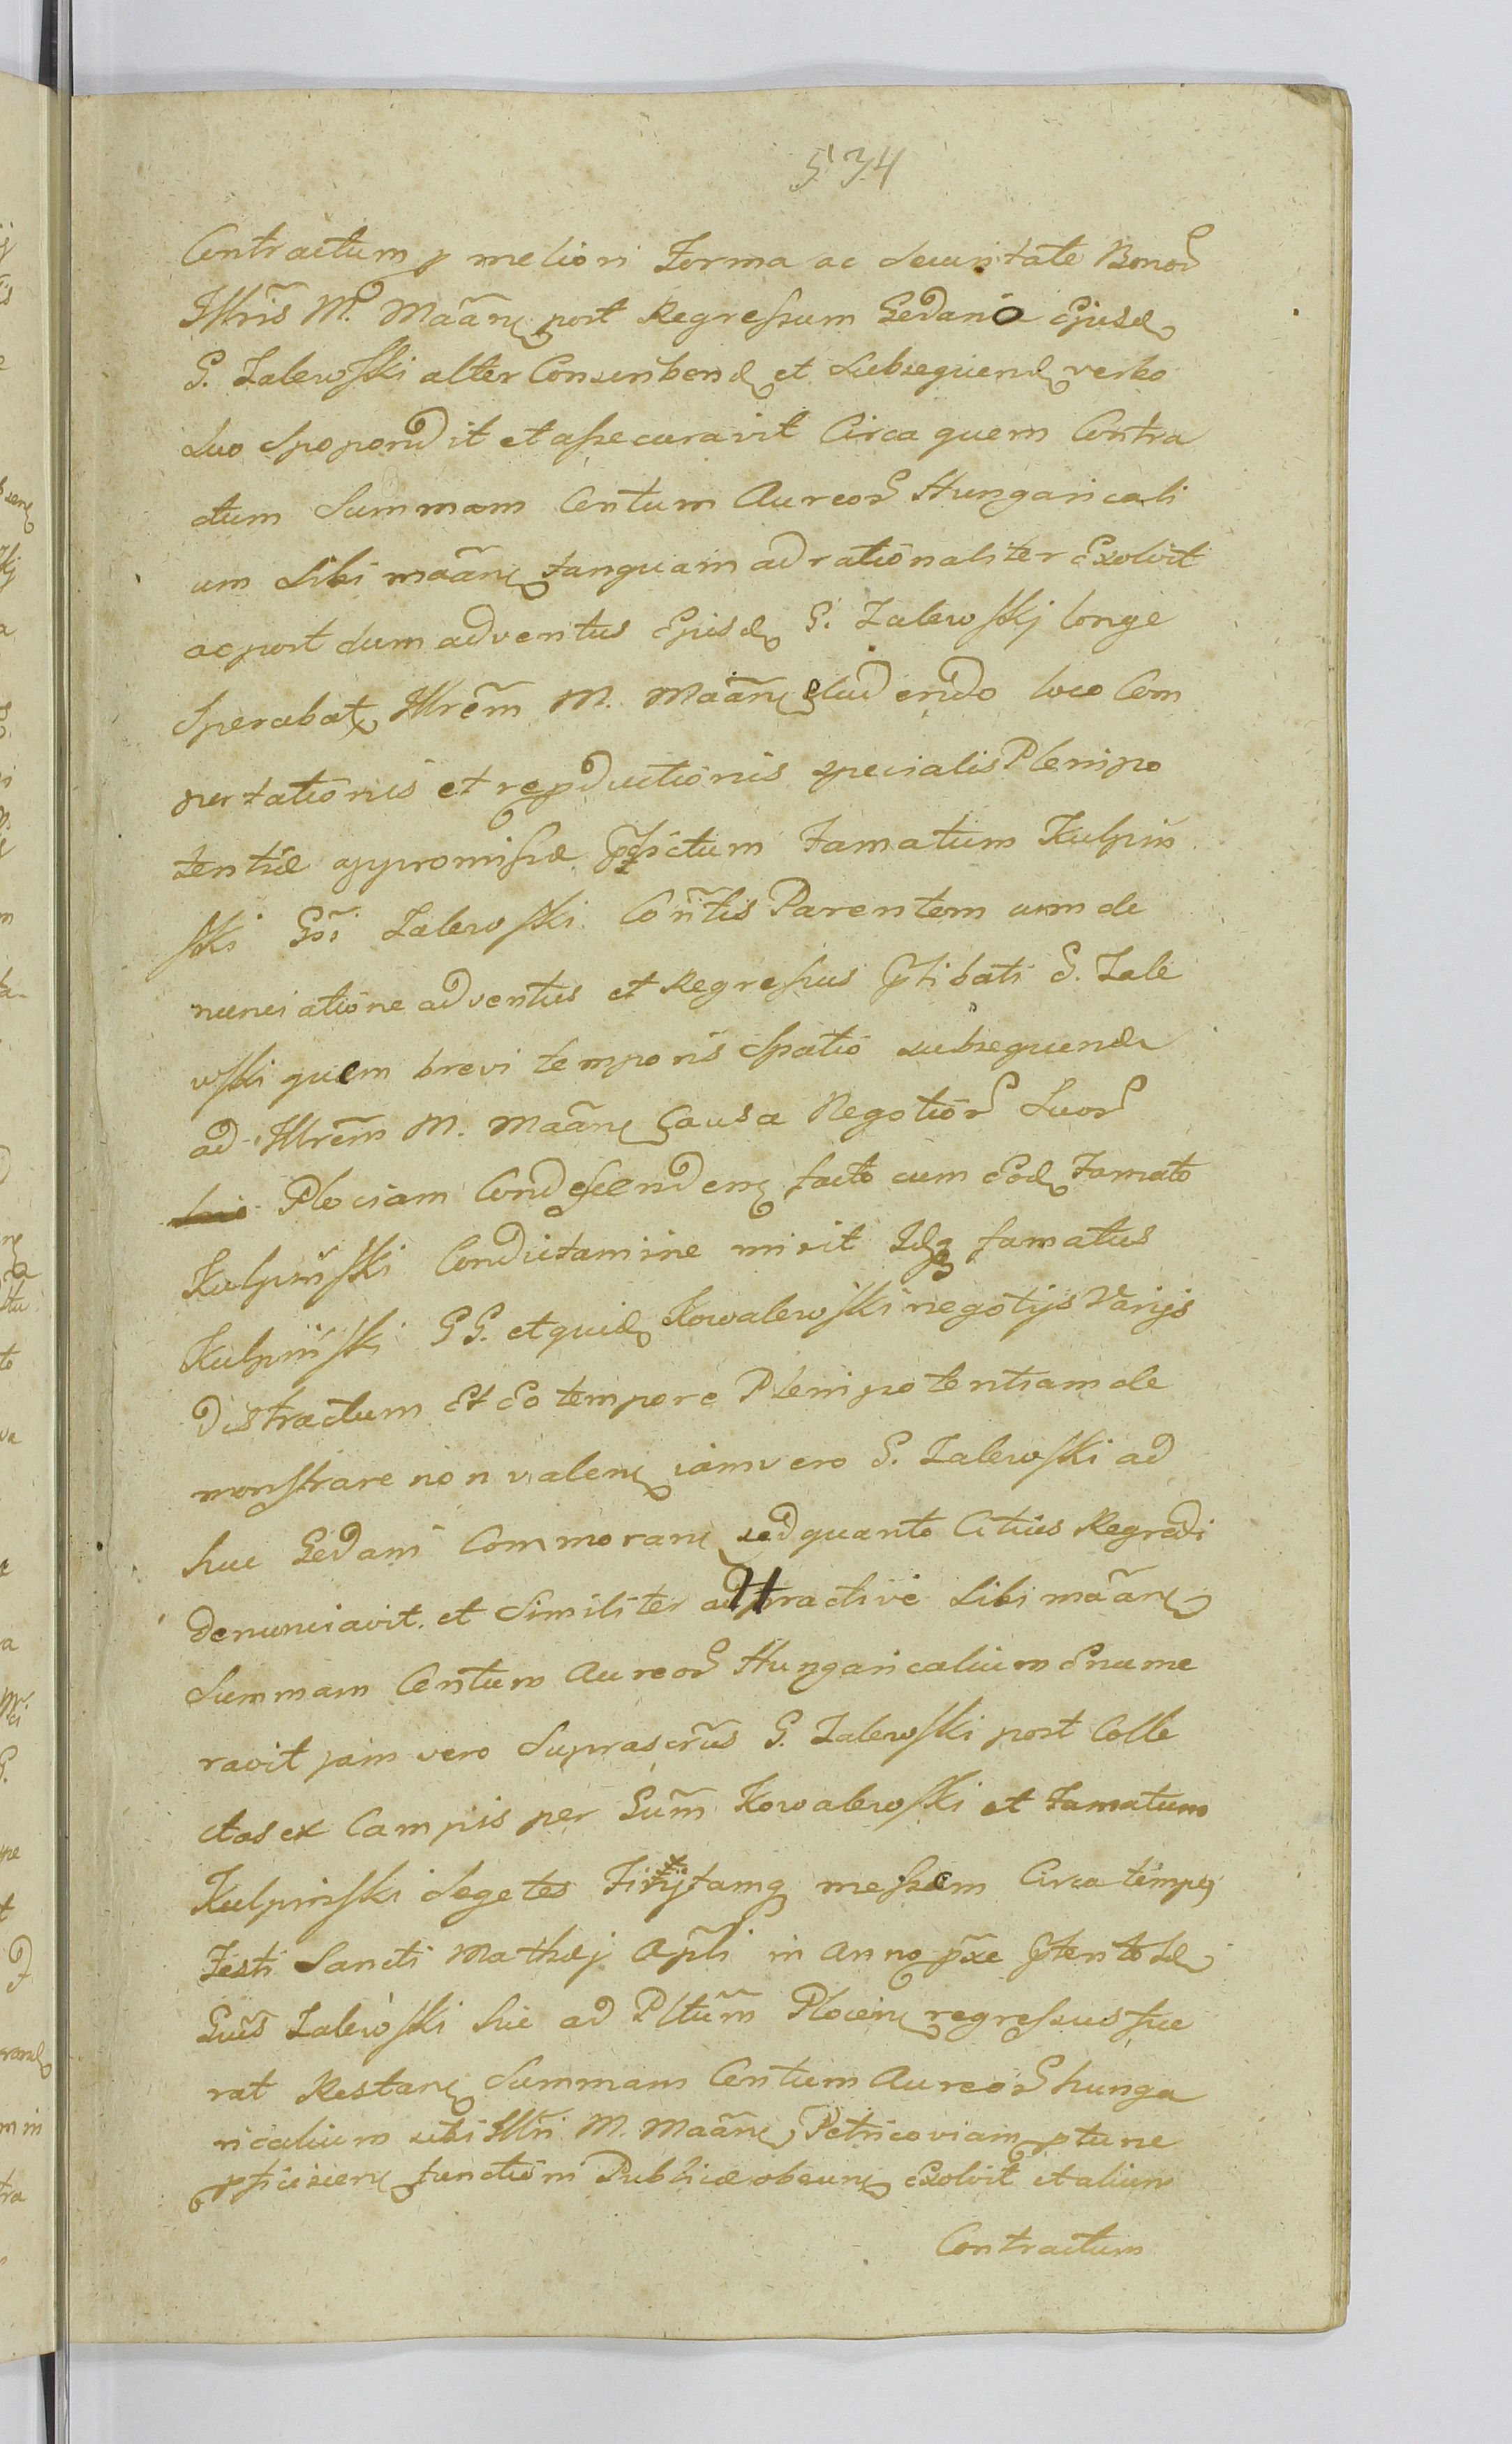 534
Contractum p meliori Forma ac Securitate Bonor
Illris M. Maãne post Regressum Gedano Ejusd
G. Zalewski alter Conscribend et Subsequend verbo
Suo Spopondit et assecuravit Circa quem Contra
ctum Summam Centum Aureor Hungaricali
um Sibi maãne tanquam ad rationaliter Exolvit
ac post dum adventus Ejusd G. Zalewskj longe
Sperabat Illrẽm M. Maãne eludendo loco Com
portationis et repductionis specialis Plenipo
tentiæ appromissæ pfictum Famatum Kulpiń
ski Gsi Zalewski Coñtis Parentem cum de
nunciatione adventus et Regressus ptibati G. Zale
wski quem brevi temporis Spatio subsequend
ad Illrẽm M. Maãne Causa Negotior Suor
Plociam Condescenden facto cum Eod Famato
Kulpiński Condictamine misit Idq famatus
Kulpiński GG. et quid Kowalewski negotijs Varijs
Distractum Et Eo tempore Plenipotentiam de
monstrare non valen iam vero G. Zalewski ad
huc Gedani Commoran sed quanto Citius Regredi
denunciavit et Similiter attractive Sibi maãne
Summam Centum Aureor Hungaricalium Enume
ravit jam vero Suprascr̃us G. Zalewski post Colle
ctas ex Campis per Gum̃ Kowalewski et Famatum
Kulpinski Segetes Finijtamq messem Circa tempq
Festi Sancti Mathæj Apl̃i in Anno pxe ptento Id
Gũs Zalewski huc ad Pltum̃ Plocen regressus fue
rat Restan Summam Centum Aureor hunga
ricalium ubi Illri M. Maãne Petricoviam ptunc
pficiscen functioni Publicæ obeun Exolvit et alium
Contractum